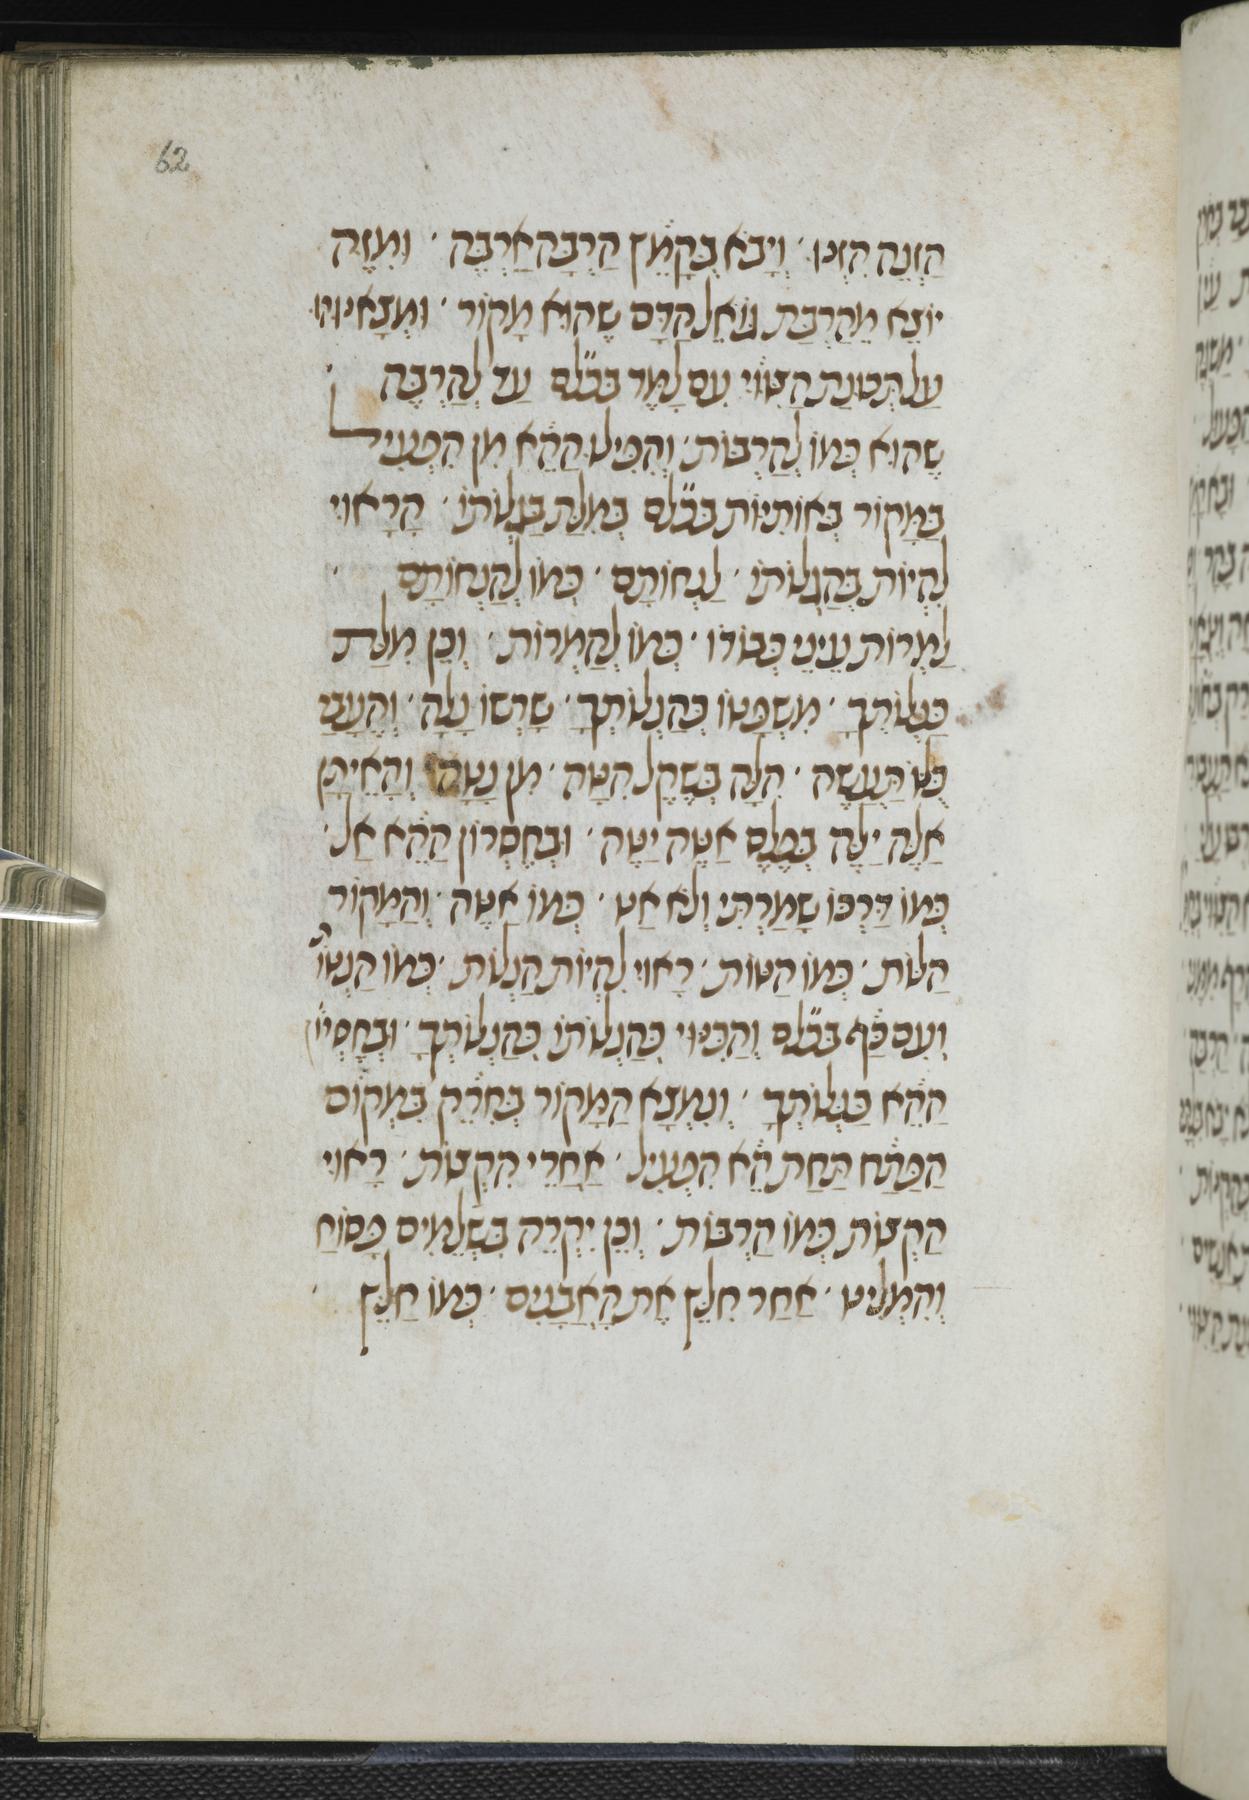 62
הַזְנֵה הִזְנוּ · וְיָבֹא בְּקָמֵץ הַרְבָּה אַרְבֶּה · וּמִזֶּה
יוֹצֵא מֵהַרְבַּת גּוֹאֵל הַדָּם שֶׁהוּא מָקוֹר · וּמְצָאָנוּהוּ
עַל תְּכוּנַת הַצִּוּוּי עִם לָמֶד בכ̈לם עַד לְהַרְבֵּה ·
שֶׁהוּא כְּמוֹ לְהַרְבּוֹת · וְהִפִּיל הַהֵא מִן הִפְעִיל
בַּמָּקוֹר בְּאוֹתִיּוֹת בכ̈לם בְּמִלַּת בַּגְלוֹתוֹ · הָרָאוּי
לִהְיוֹת בְּהַגְלוֹתוֹ · לַנְחוֹתָם · כְּמוֹ לְהַנְחוֹתָם ·
לַמְרוֹת עֵינֵי כְבוֹדוֹ · כְּמוֹ לְהַמְרוֹת · וְכֵן מִלַּת
כַּנְּלוֹתְךָ · מִשְׁפָּטוֹ כְּהַנְלוֹתְךָ · שָׁרְשׁוֹ נָלָה · וְהָעָבַר
הִלָּה בְּשֶׁקֶל הִטָּה · מִן נָטָה · וְהָאֵיתָן
אַלֶּה יַלֶּה בְּסֶגֶל אַטֶּה יַטֶּה · וּבְחֶסְרוֹן הַהֵא אַל ·
כְּמוֹ דַּרְכּוֹ שָׁמַרְתִּי וְלֹא אַט · כְּמוֹ אַטֶּה · וְהַמָּקוֹר
הַלּוֹת · כְּמוֹ הַטּוֹת · רָאוּי לִהְיוֹת הַנְלוֹת · כְּמוֹ הַנְטוֹת
וְעִם כַּף בכ̈לם וְהַכִּנּוּי כְּהַנְלוֹתוֹ כְּהַנְלוֹתְךָ · וּבְחֶסְרוֹן
הַהֵא כַּנְּלוֹתְךָ · וְנִמְצָא הַמָּקוֹר בְּחִרֵק בִּמְקוֹם
הַפַּתַּח תַּחַת הֵא הִפְעִיל · אַחֲרֵי הִקְצוֹת · רָאוּי
הַקְצוֹת כְּמוֹ הַרְבּוֹת · וְכֵן יִקְרֶה בִּשְׁלֵמִים פָּסוֹחַ
וְהִמְלִיט · אַחַר חִלֵּץ אֶת הָאֲבָנִים · כְּמוֹ חַלֵּץ ·